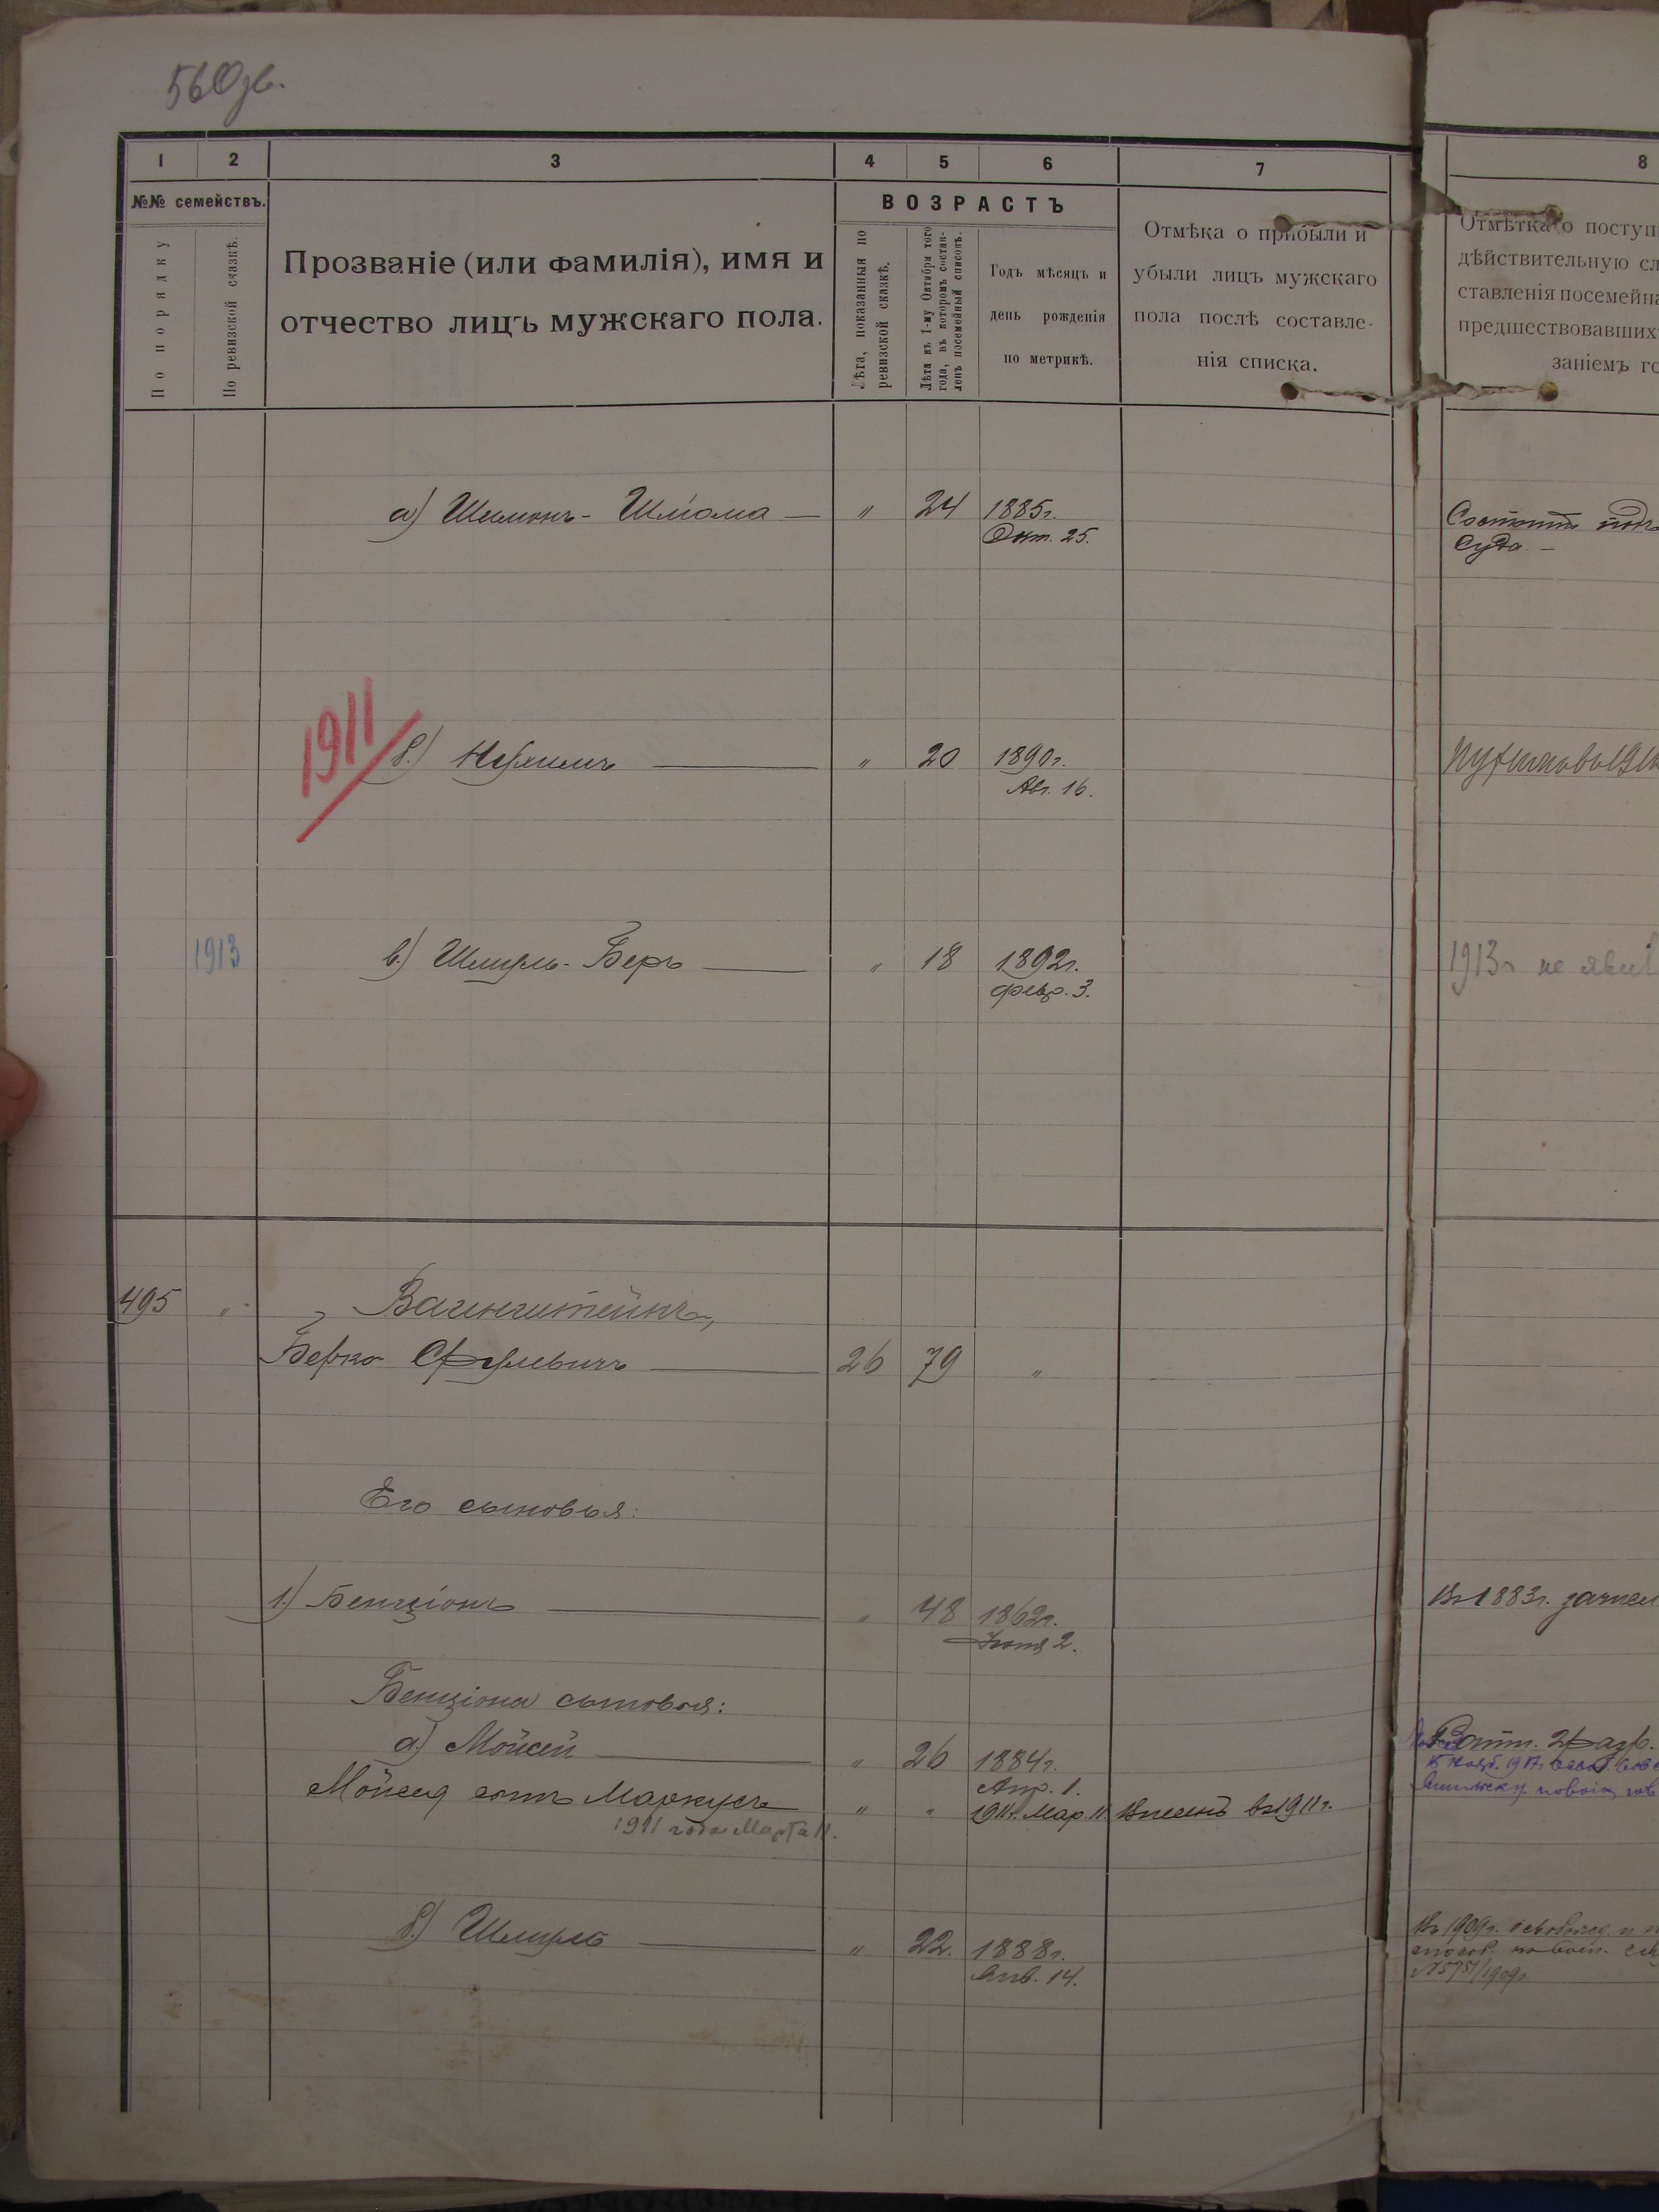 1
2
3
4
5
6
7
8
№№ семействъ.
По порядку
По ревизской сказкѣ.
Прозваніе (или фамилія), имя и
отчество лицъ мужскаго пола.
ВОЗРАСТЪ
Лѣта, показанныя по
ревизской сказкѣ.
Лѣта къ 1-му Октября того
года, въ которомъ состав-
ленъ посемейный списокъ.
Годъ мѣсяцъ и
день рожденія
по метрикѣ.
Отмѣка о прибыли и
убыли лицъ мужскаго
пола послѣ составле-
нія списка.
Отмѣтка о поступ
дѣйствительную сл
ставленія посемейна
предшествовавших
заніемъ го
а) Шимонъ-Шлома — " 24 1885г.
Окт. 25.
Состоитъ подъ
Суда. —
1911
б.) — " 20 1890г.
Авг. 16.
1913
в.) Шмуль-Беръ — " 18 1892г.
февр. 3.
1913г не явил
495 " Вагинштейнъ,
Берко Срулевичъ — 26 79 "
Его сыновья:
1.) Бенціонъ — " 48 1862г.
Іюня 2.
Въ 1883г. зачисл
Бенціона сыновья:
а.) Мойсей — " 26 1884г.
Апр. 1.
Мойсея сынъ Маркусъ " " 1911г. Мар. 11. Внесенъ въ 1911г.
1911 года Марта 11.
б.) Шмуль — " 22. 1888г.
Янв. 14.
Въ 1909г.